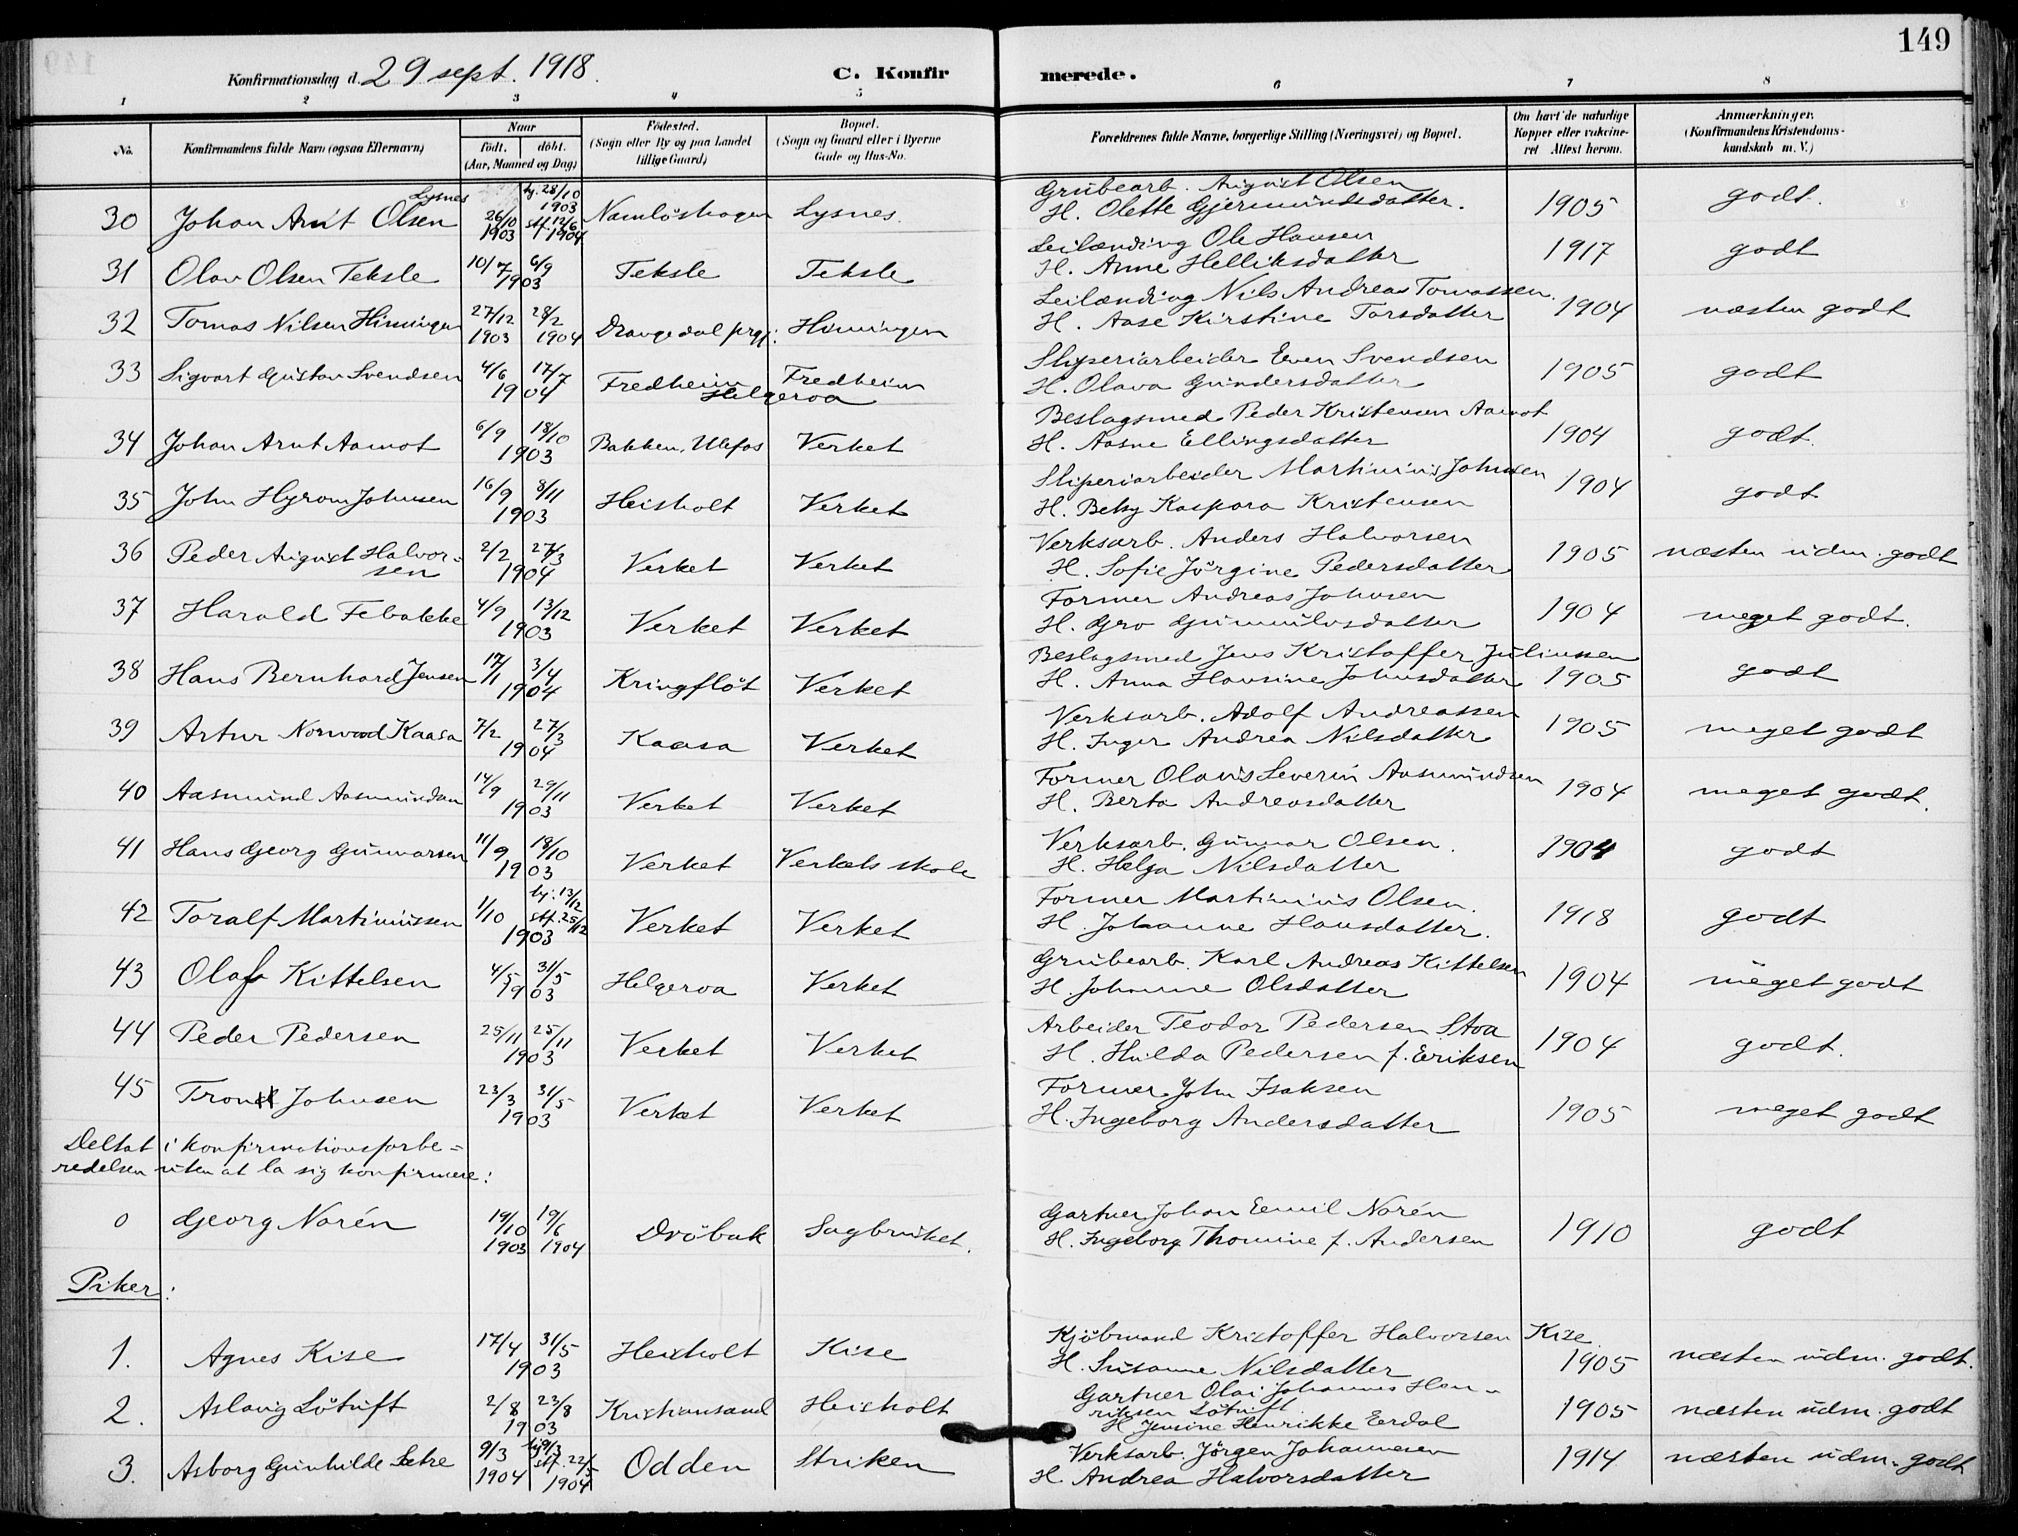 149
Konfirmationsdag d. 29 sept. 1918.
C. Konfirmerede.
1 2 3 4 5 6 7 8
No. Konfirmandens fulde Navn (ogsaa Efternavn) Naar født. døbt. (Aar, Maaned og Dag) Fødested. (Sogn eller By og paa Landet tillige Gaard) Bopæl. (Sogn og Gaard eller i Byerne Gade og Hus-No. Forældrenes fulde Navne, borgerlige Stilling (Næringsvei) og Bopæl. Om havt de naturlige Kopper eller vakcineret Attest herom. Anmærkninger. (Konfirmandens Kristendomskundskab m. V.)
30 Johan Arnt Olsen Lysnes 26/10 1903 hj. 28/10 1903 stf. 12/6 1904 Namløshagen Lysnes. Grubearb. August Olsen
H. Olette Gjermundsdatter. 1905 godt.
31 Olav Olsen Teksle 10/7 6/9 1903 Teksle Teksle Leilænding Ole Hansen
H. Anne Helliksdatter 1917 godt
32 Tomas Nilsen Himingen 27/12 1903 28/2 1904 Drangedal prgj. Himingen Leilænding Nils Andreas Tomassen.
H. Aase Kirstine Torsdatter 1904 næsten godt
33 Sigvart Gustav Svendsen 4/6 17/7 1904 Fredheim Helgeroa Fredheim Sliperiarbeider Even Svendsen
H. Olava Gundersdatter 1905 godt
34 Johan Arnt Aamot 6/9 18/10 1903 Bakken, Ulefos Verket Beslagsmed Peder Kristensen Aamot
H. Aasne Ellingsdatter 1904 godt.
35 John Hyrom Johnsen 16/9 8/11 1903 Heisholt Verket Sliperiarbeider Martinius Johnsen
H. Betsy Kaspara Kristensen 1904 godt
36 Peder August Halvorsen 2/2 27/3 1904 Verket Verket Verksarb. Anders Halvorsen
H. Sofie Jørgine Pedersdatter 1905 næsten udm. godt
37 Harald Febakke 4/9 13/12 1903 Verket Verket Former Andreas Johnsen
H. Gro Gunnulvsdatter 1904 meget godt.
38 Hans Bernhard Jensen 17/1 3/4 1904 Kringfløt Verket Beslagsmed Jens Kristoffer Juliussen
H. Anna Hansine Johnsdatter 1905 godt
39 Artur Norwad Kaasa 7/2 27/3 1904 Kaasa Verket Verksarb. Adolf Andreassen
H. Inger Andrea Nilsdatter 1905 meget godt
40 Aasmund Aasmundsen 14/9 29/11 1903 Verket Verket Former Olavis Severin Aasmundsen
H. Berta Andreasdatter 1904 meget godt.
41 Hans Georg Gunnarsen 11/9 18/10 1903 Verket Verkets skole Verksarb. Gunnar Olsen.
H. Helga Nilsdatter 1904 godt
42 Toralf Martiniussen 1/10 hj. 13/12 stf. 25/12 1903 Verket Verket Former Martinius Olsen.
H. Johanne Hansdatter. 1918 godt
43 Olaf Kittelsen 4/5 31/5 1903 Helgeroa Verket Grubearb. Karl Andreas Kittelsen
H. Johanne Olsdatter 1904 meget godt
44 Peder Pedersen 25/11 25/11 1903 Verket Verket Arbeider Teodor Pedersen Stoa
H. Hulda Pedersen f. Eriksen 1904 godt.
45 Trond Johnsen 23/3 31/5 1903 Verket Verket Former John Isaksen
H. Ingeborg Andersdatter 1905 meget godt
Deltat i konfirmationsforbe=
redelsen uten at la sig konfirmere:
0 Georg Norén 19/10 1903 19/6 1904 Drøbak Sagbruket. Gartner Johan Eemil Norén
H. Ingeborg Thomine f. Andersen 1910 godt
Piker:
1. Agnes Kise 17/4 31/5 1903 Heisholt Kise Kjøbmand Kristoffer Halvorsen Kise
H. Susanne Nilsdatter 1905 næsten udm. godt.
2. Aslaug Løtuft 2/8 23/8 1903 Kristiansand Heisholt Gartner Olai Johannes Hen-
riksen Løtuft
H. Jensine Henrikke Eerdal 1905 næsten udm. godt
3. Asborg Gunhilde Sætre 9/3 1904 hj. 9/3 stf. 22/5 1904 Odden Striken Verksarb. Jørgen Johannesen
H. Andrea Halvorsdatter 1914 næsten udm. godt